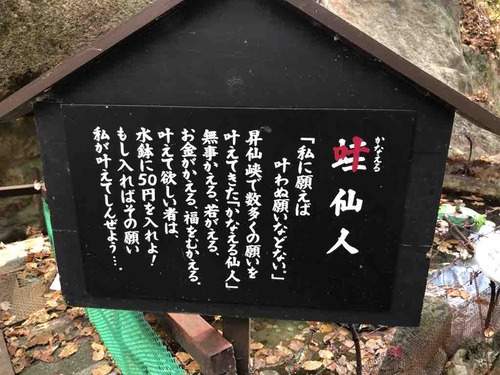 かなえる
蛙仙人
「私に願えば
叶わぬ願いなどない。」
昇仙峡で数多くの願いを
叶えてきた「かなえる仙人」
無事かえる、若がえる、
お金がかえる、福をむかえる。
叶えて欲しい者は、
水鉢に50円を入れよ!
もし入ればその願い
私が叶えてしんぜよう…。